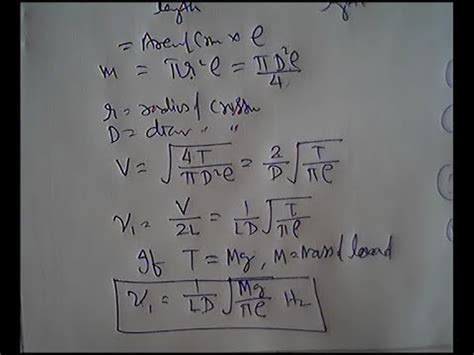 length
= Area of Cross × ρ
m = πr²ρ = πD²ρ/4
r = radius of cross
D = diam " "
V = √(4T/πD²ρ) = 2/D √(T/πρ)
ν₁ = V/2L = 1/LD √(T/πρ)
If T = Mg, M = Mass of load
ν₁ = 1/LD √(Mg/πρ) Hz